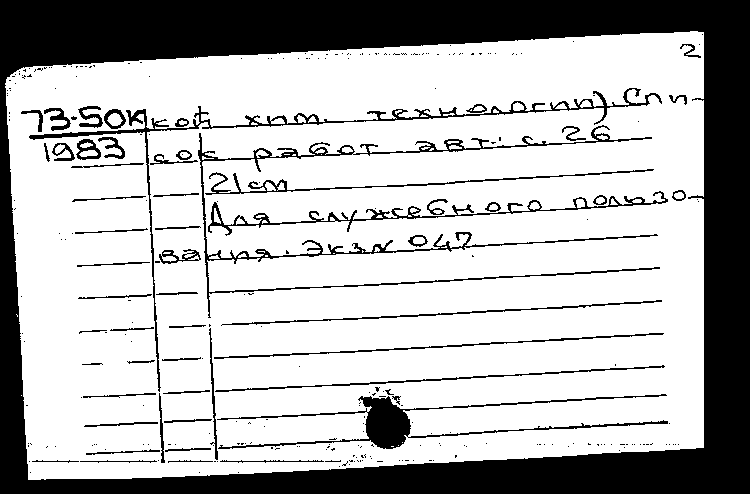 2
73-50к кой хим. технологии). Спи-
1983 сок работ авт.: с. 26
21 см
Для служебного пользо-
вания. Экз № 047